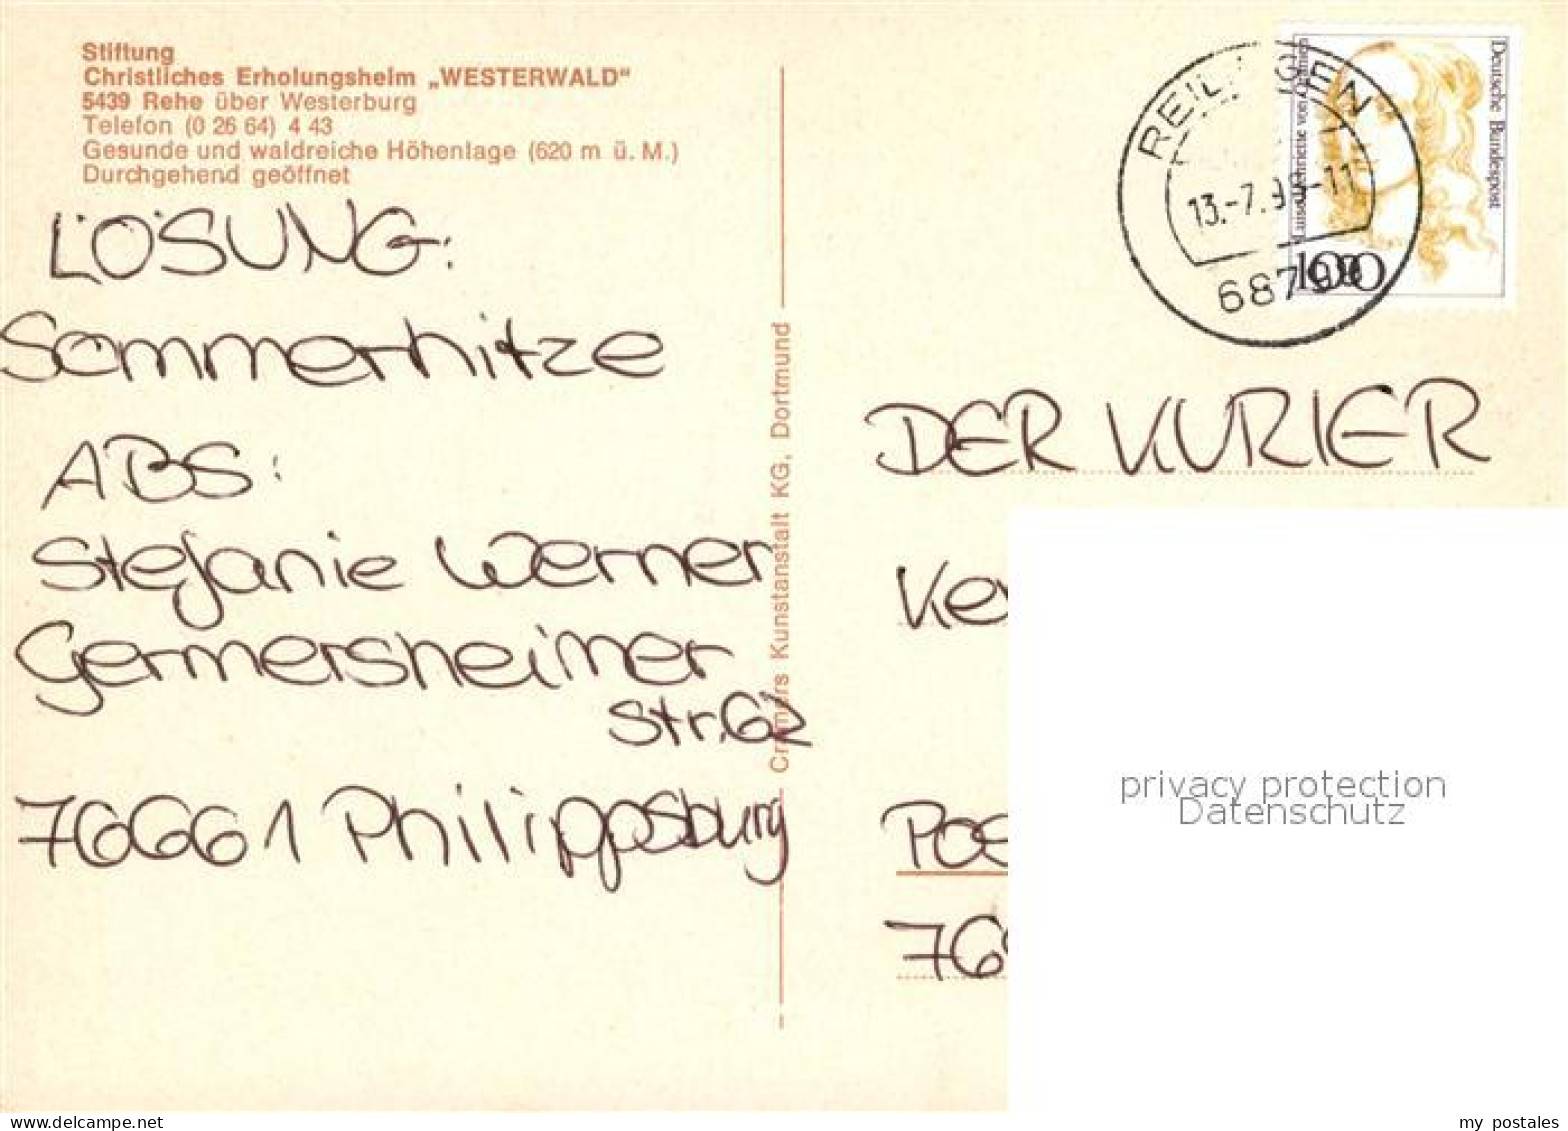 Stiftung
Christliches Erholungsheim „WESTERWALD"
5439 Rehe über Westerburg
Telefon (0 26 64) 4 43
Gesunde und waldreiche Höhenlage (620 m ü. M.)
Durchgehend geöffnet
LÖSUNG:
Sommerhitze
ABS:
Stefanie Werner
Germersheimer
Str. 62
76661 Philippsburg
Cramers Kunstanstalt KG, Dortmund
REILINGEN
13.-7.9
-11
68799
Deutsche Bundespost
Luise Henriette von Oranien
100
DER KURIER
privacy protection
Datenschutz
my postales